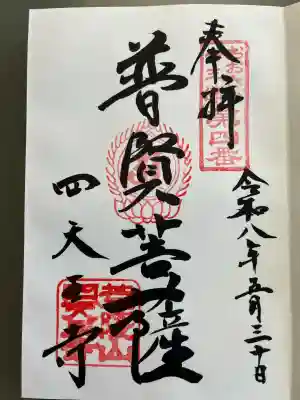 奉拝
第四番
令和八年五月三十日
普賢菩薩
四天王寺